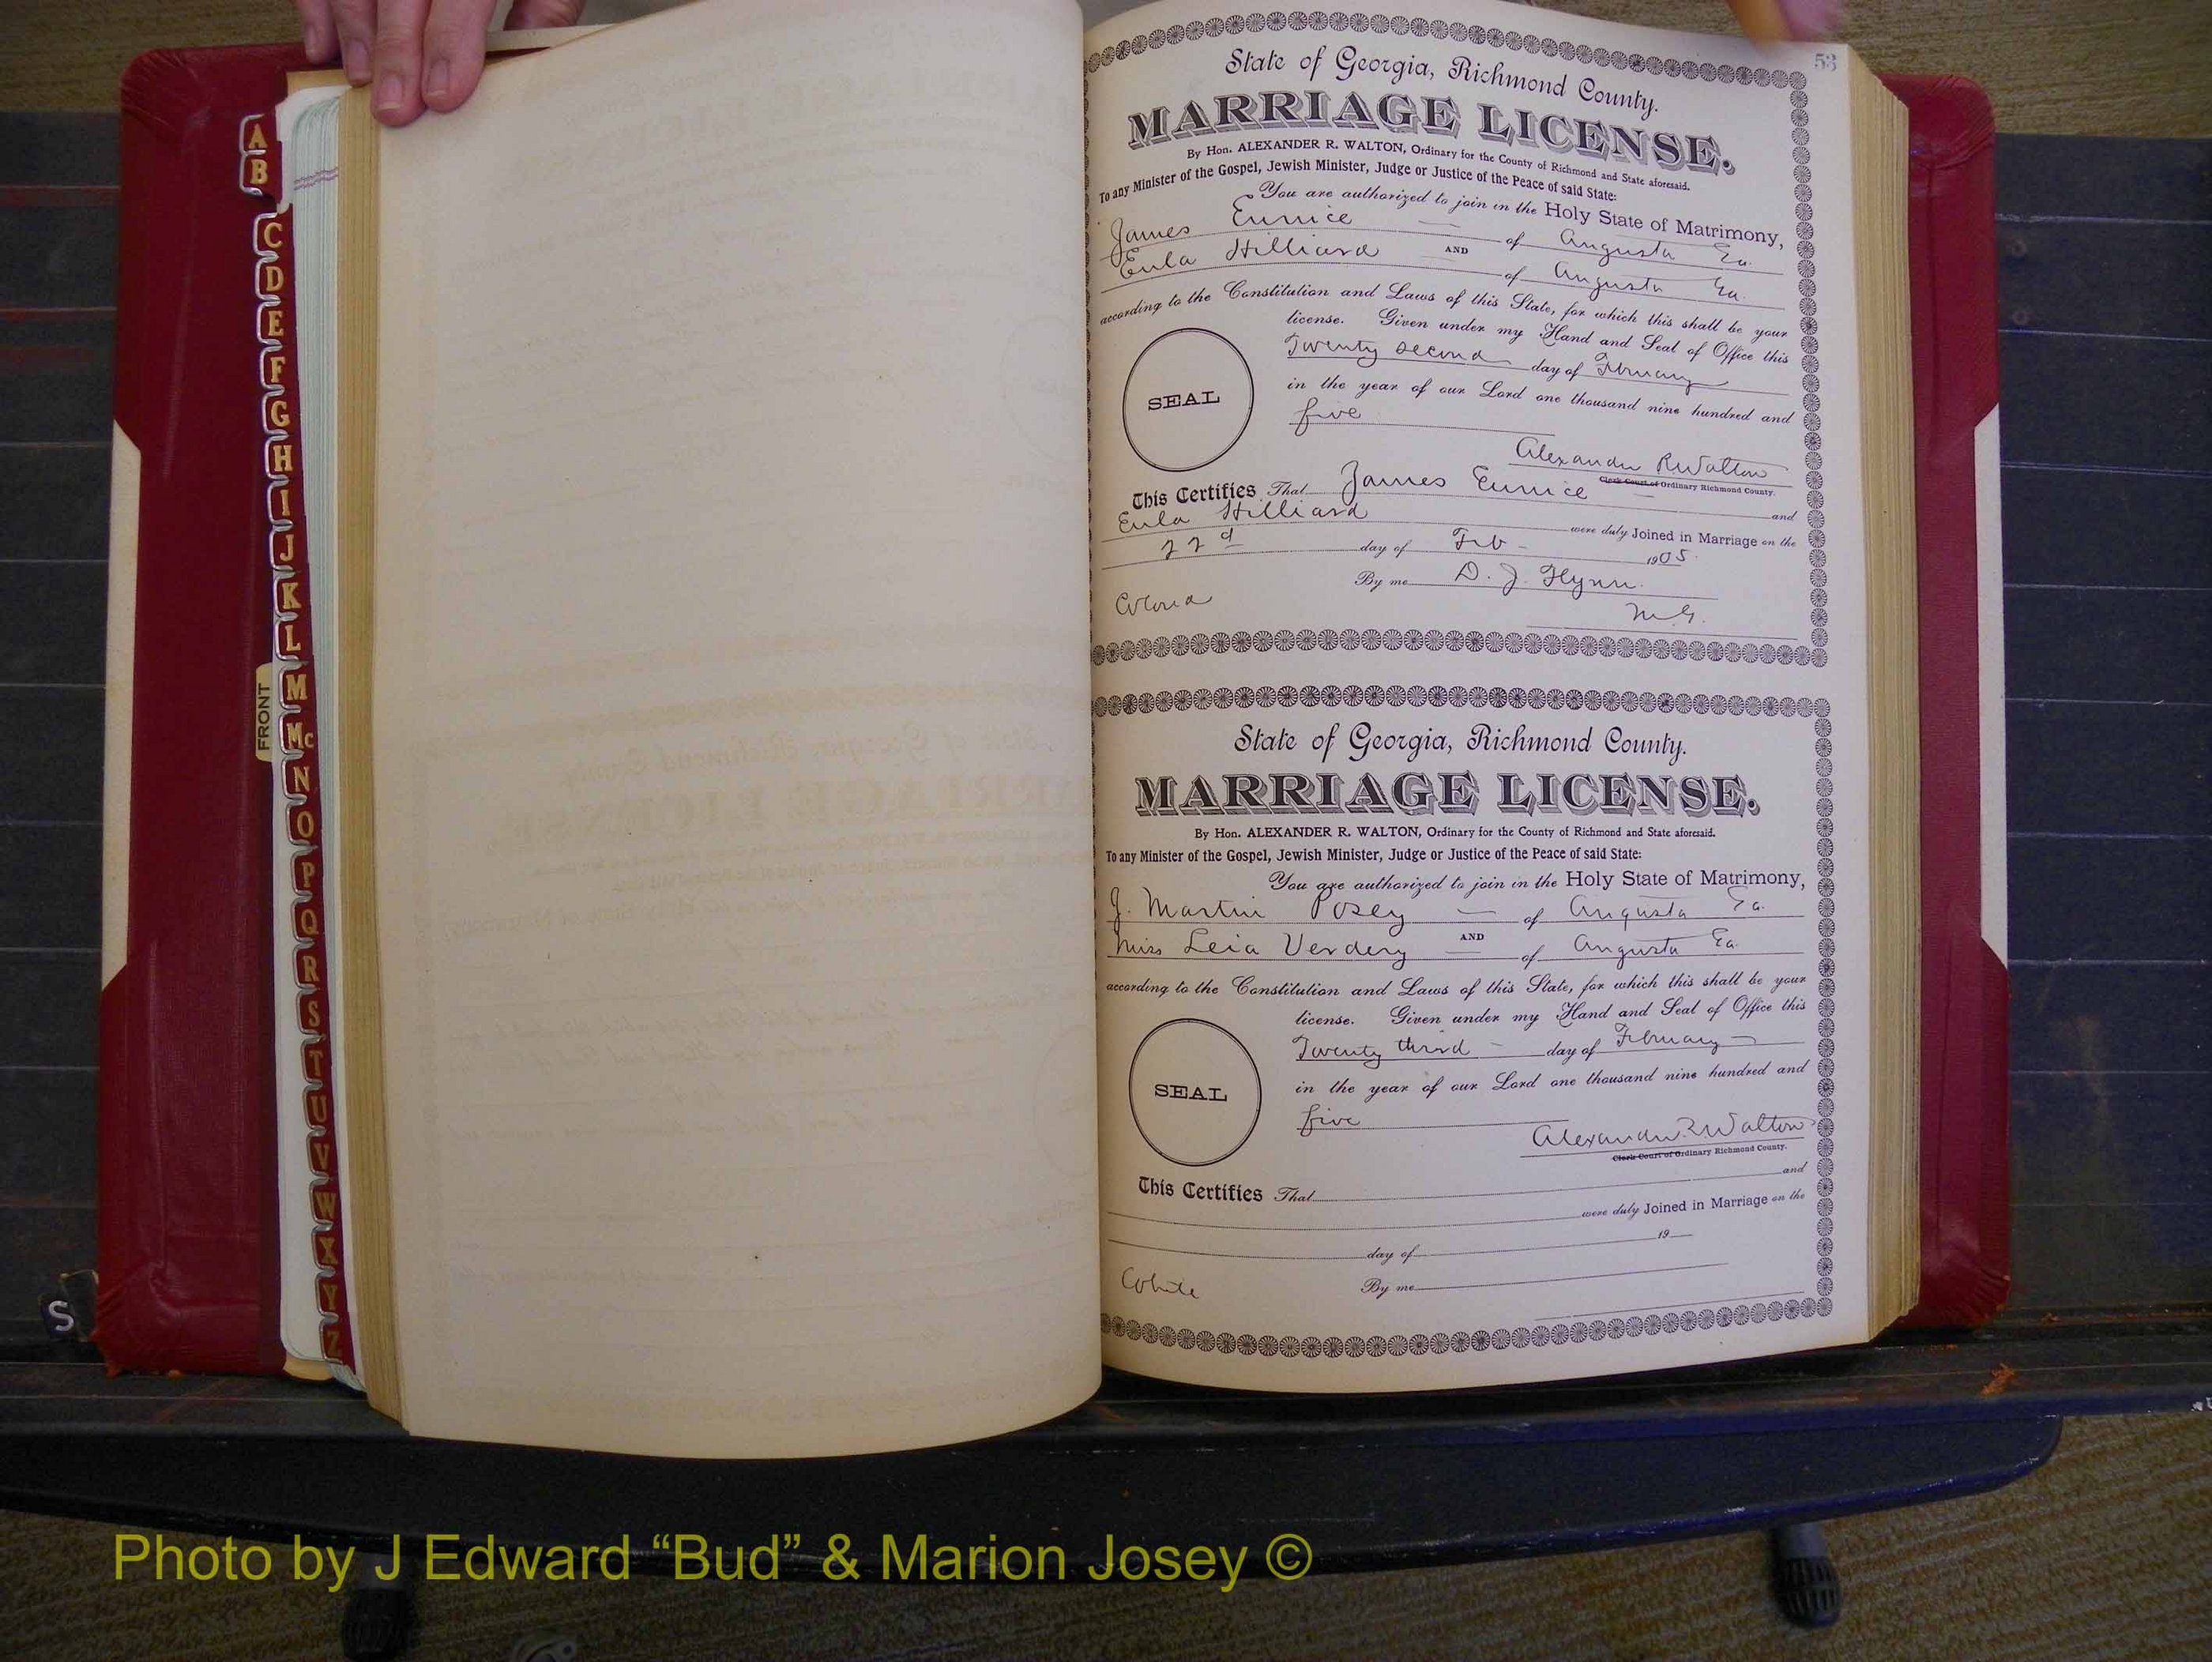 A
B
C
D
E
F
G
H
I
J
K
L
FRONT
M
Mc
N
O
P
Q
R
S
T
U
V
W
X
Y
Z
S
53
State of Georgia, Richmond County.
MARRIAGE LICENSE.
By Hon. ALEXANDER R. WALTON, Ordinary for the County of Richmond and State aforesaid.
To any Minister of the Gospel, Jewish Minister, Judge or Justice of the Peace of said State:
You are authorized to join in the Holy State of Matrimony,
James Eunice of Augusta Ga.
AND
Eula Hilliard of Augusta Ga.
according to the Constitution and Laws of this State, for which this shall be your
license. Given under my Hand and Seal of Office this
Twenty second day of February
in the year of our Lord one thousand nine hundred and
five
SEAL
Alexander R Walton
Clerk Court of Ordinary Richmond County.
This Certifies That James Eunice and
Eula Hilliard were duly Joined in Marriage on the
22d day of Feb 1905.
By me D. J. Flynn.
Colored M.G.
State of Georgia, Richmond County.
MARRIAGE LICENSE.
By Hon. ALEXANDER R. WALTON, Ordinary for the County of Richmond and State aforesaid.
To any Minister of the Gospel, Jewish Minister, Judge or Justice of the Peace of said State:
You are authorized to join in the Holy State of Matrimony,
J. Martin Posey of Augusta Ga.
AND
Miss Leia Verdery of Augusta Ga.
according to the Constitution and Laws of this State, for which this shall be your
license. Given under my Hand and Seal of Office this
Twenty third day of February
in the year of our Lord one thousand nine hundred and
five
SEAL
Alexander R Walton
Clerk Court of Ordinary Richmond County.
This Certifies That and
were duly Joined in Marriage on the
day of 19
White By me
Photo by J Edward “Bud” & Marion Josey ©